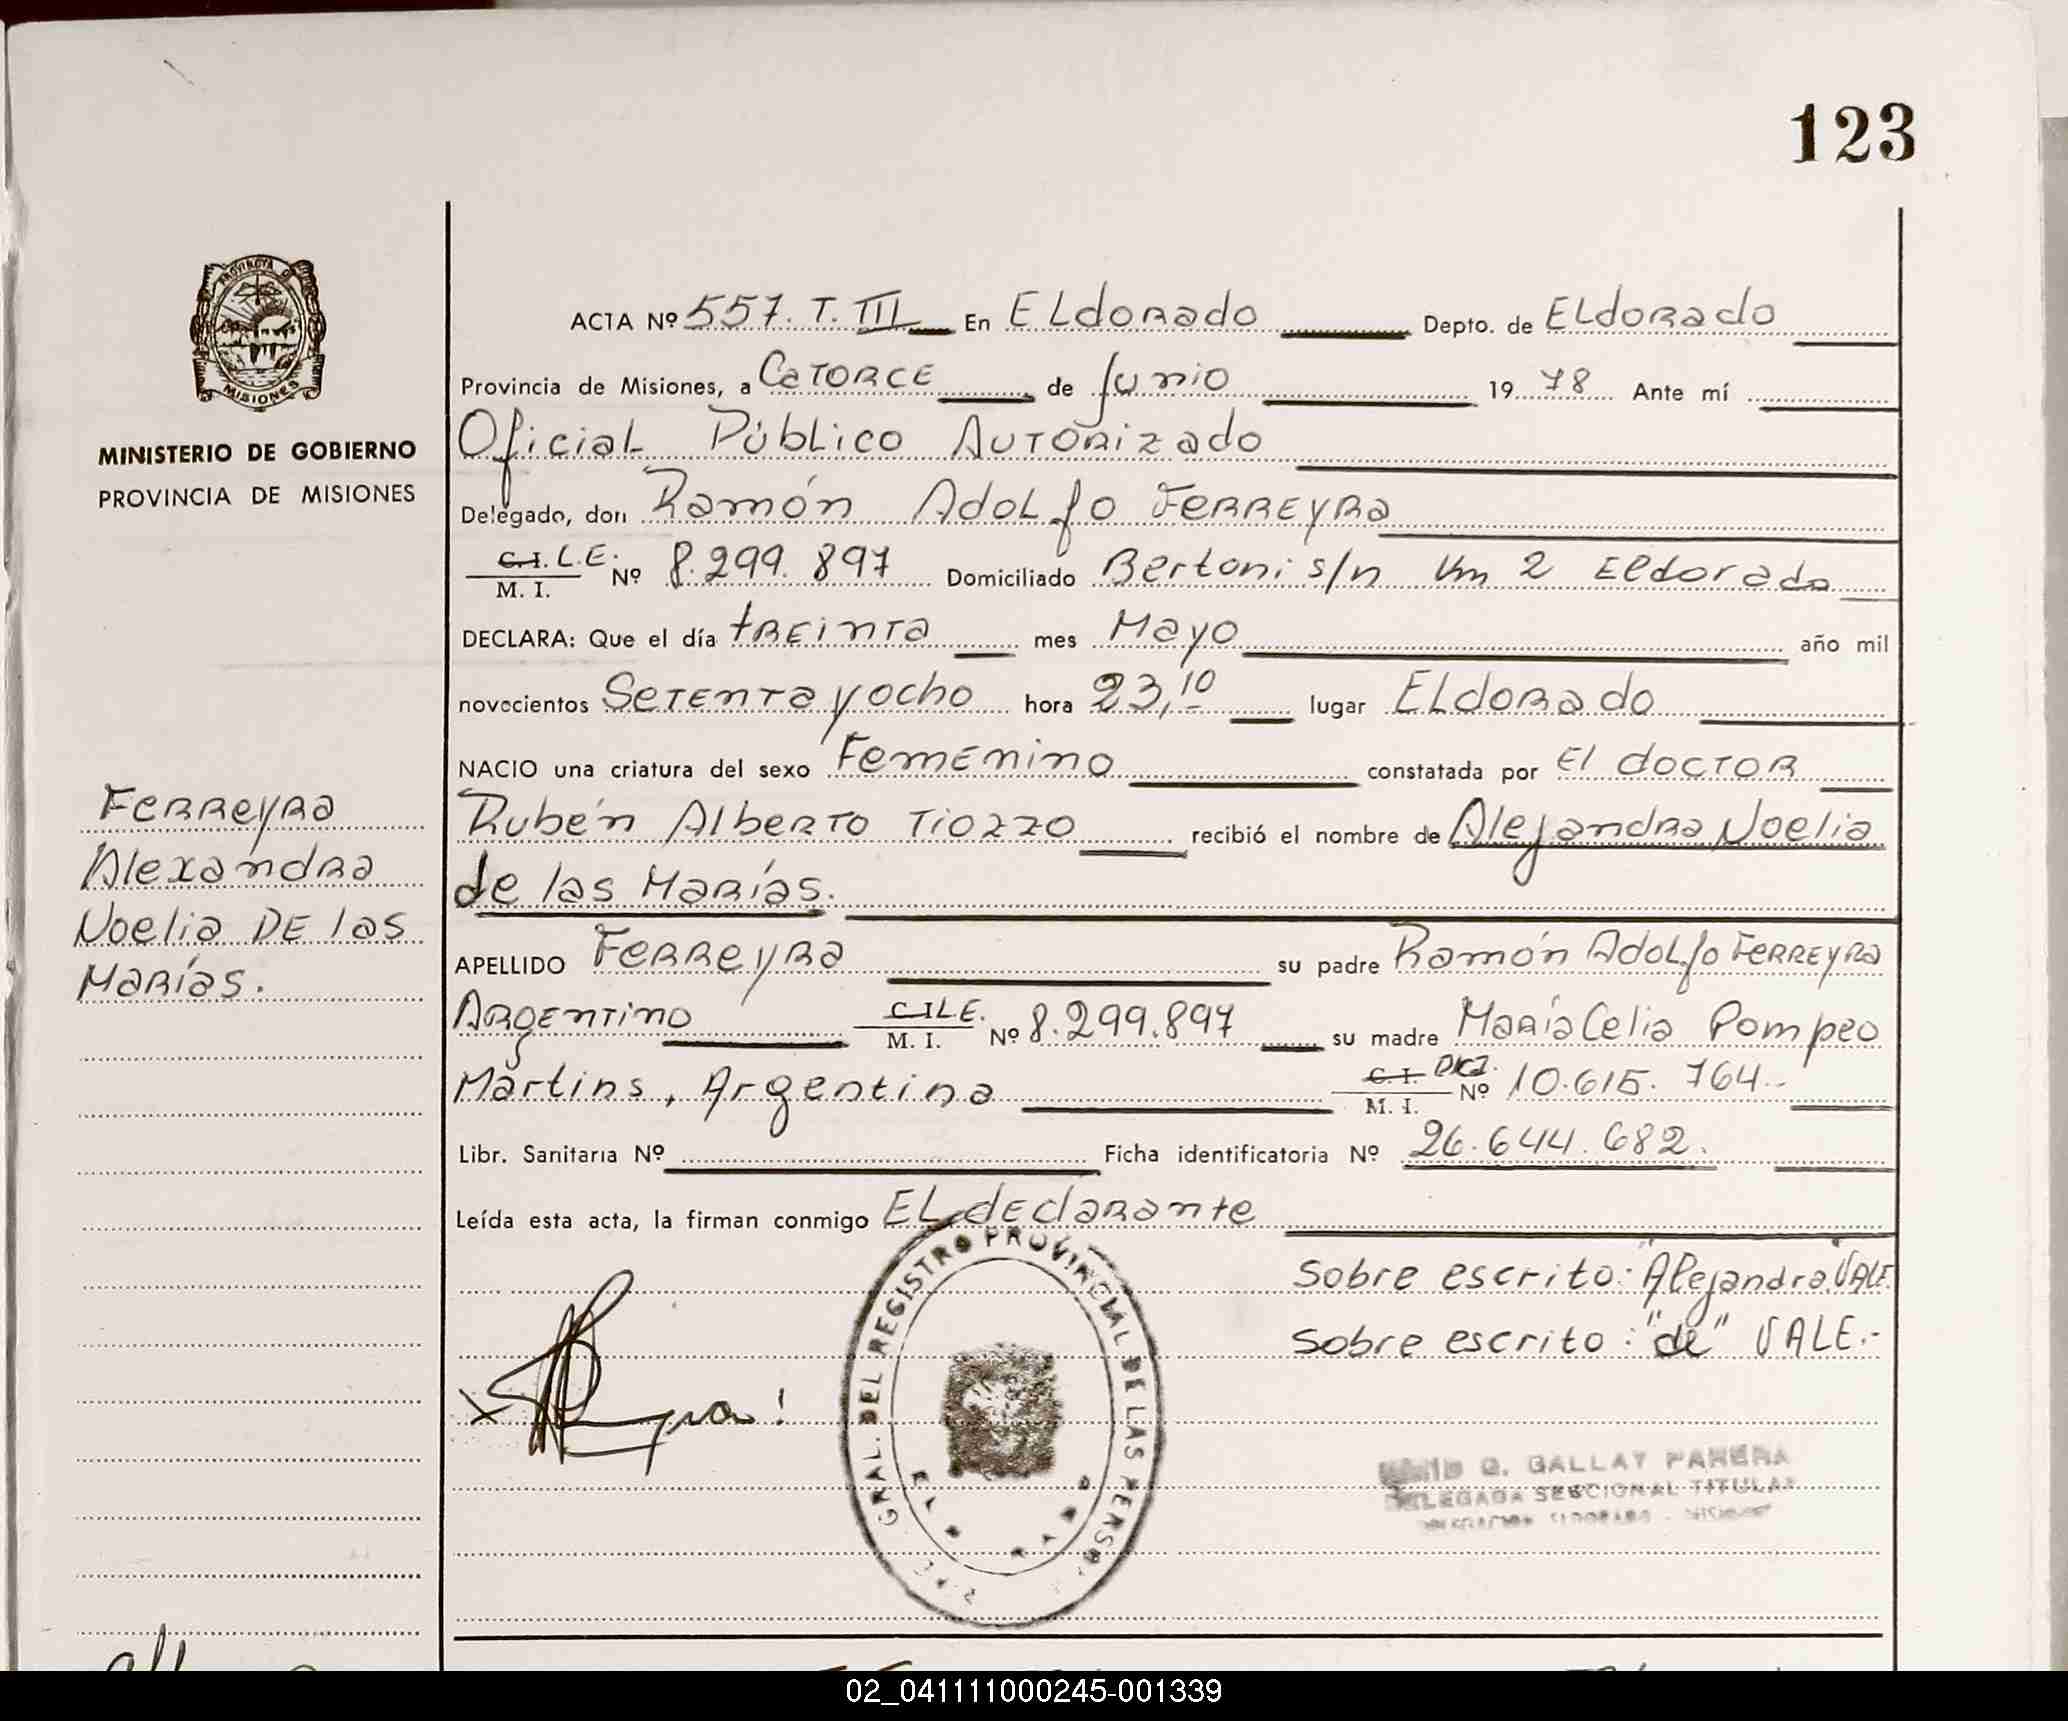 123
PROVINCIA D
MISIONES
MINISTERIO DE GOBIERNO
PROVINCIA DE MISIONES
Ferreyra
Alexandra
Noelia DE las
Marías.
ACTA Nº 557. T. III En ELdorado Depto. de ELdorado
Provincia de Misiones, a CATORCE de Junio 19 78 Ante mí
Oficial Público Autorizado
Delegado, don Ramón Adolfo Ferreyra
C.I. L.E. Nº 8.299.897 Domiciliado Bertoni s/n Km 2 Eldorado
M. I.
DECLARA: Que el día treinta mes Mayo año mil
novecientos Setenta y ocho hora 23,10 lugar ELdorado
NACIO una criatura del sexo Femenino constatada por El doctor
Rubén Alberto Tiozzo recibió el nombre de Alejandra Noelia
de las Marías.
APELLIDO Ferreyra su padre Ramón Adolfo Ferreyra
Argentino C.I L.E. Nº 8.299.897 su madre María Celia Pompeo
M. I.
Martins, Argentina C.I. Nº 10.615.764.-
M. I.
Libr. Sanitaria Nº Ficha identificatoria Nº 26.644.682.
Leída esta acta, la firman conmigo EL declarante
Sobre escrito: "Alejandra" VALE.
Sobre escrito: "de" VALE.-
GRAL. DEL REGISTRO PROVINCIAL DE LAS PERSO
G. GALLAY PARERA
DELEGADA SECCIONAL TITULAR
02_041111000245-001339